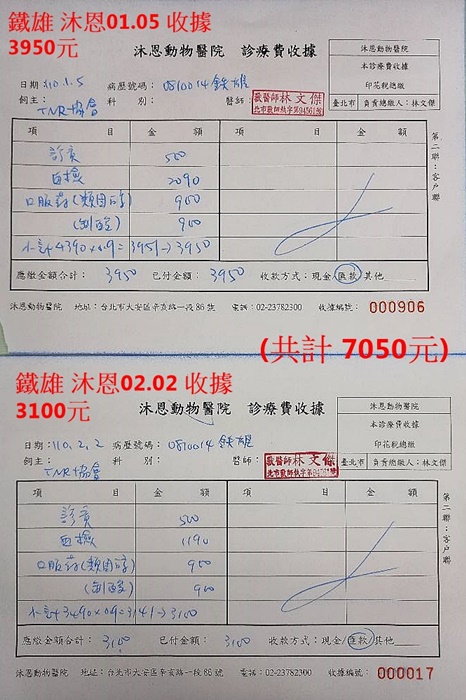 鐵雄 沐恩01.05 收據
3950元
沐恩動物醫院 診療費收據
沐恩動物醫院
本診療費收據
印花稅總繳
臺北市 負責總繳人：林文傑
日期：110.1.5 病歷號碼：0810014 鉄雄
飼主：TNR協會 科 別： 醫師：獸醫師林文傑
項 目 金 額 項 目 金 額
診察 500
血檢 2090
口服葯(類固醇) 900
900
小計4390×0.9=3951→3950
應繳金額合計：3950 已付金額：3950 收款方式：現金/匯款/其他
沐恩動物醫院 地址：台北市大安區辛亥路一段86號 電話：02-23782300 收據編號：000906
第二聯：客戶聯
(共計 7050元)
鐵雄 沐恩02.02 收據
3100元
沐恩動物醫院 診療費收據
沐恩動物醫院
本診療費收據
印花稅總繳
臺北市 負責總繳人：林文傑
日期：110.2.2 病歷號碼：0810014 鉄雄
飼主：TNR協會 科 別： 醫師：獸醫師林文傑
項 目 金 額 項 目 金 額
診察 500
血檢 1190
口服葯(類固醇) 900
900
小計3490×0.9=3141→3100
應繳金額合計：3100 已付金額：3100 收款方式：現金/匯款/其他
沐恩動物醫院 地址：台北市大安區辛亥路一段86號 電話：02-23782300 收據編號：000017
第二聯：客戶聯